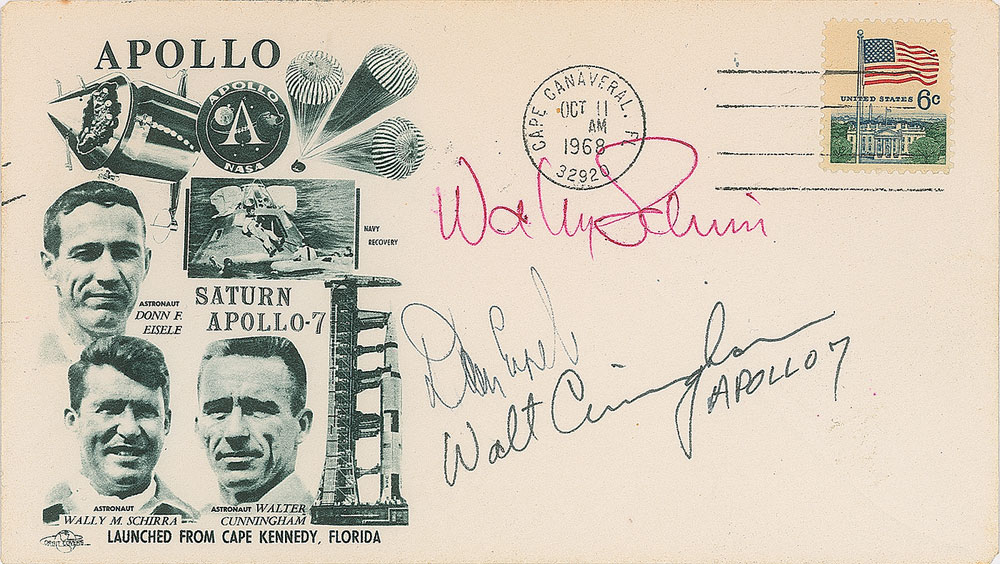 APOLLO
APOLLO
NASA
NAVY
RECOVERY
ASTRONAUT
DONN F.
EISELE
SATURN
APOLLO-7
ASTRONAUT
WALLY M. SCHIRRA
ASTRONAUT WALTER
CUNNINGHAM
ORBIT COVERS
LAUNCHED FROM CAPE KENNEDY, FLORIDA
CAPE CANAVERAL, FL
OCT 11
AM
1968
32920
UNITED STATES 6c
Wally Schirra
Donn Eisele
Walt Cunningham
APOLLO 7